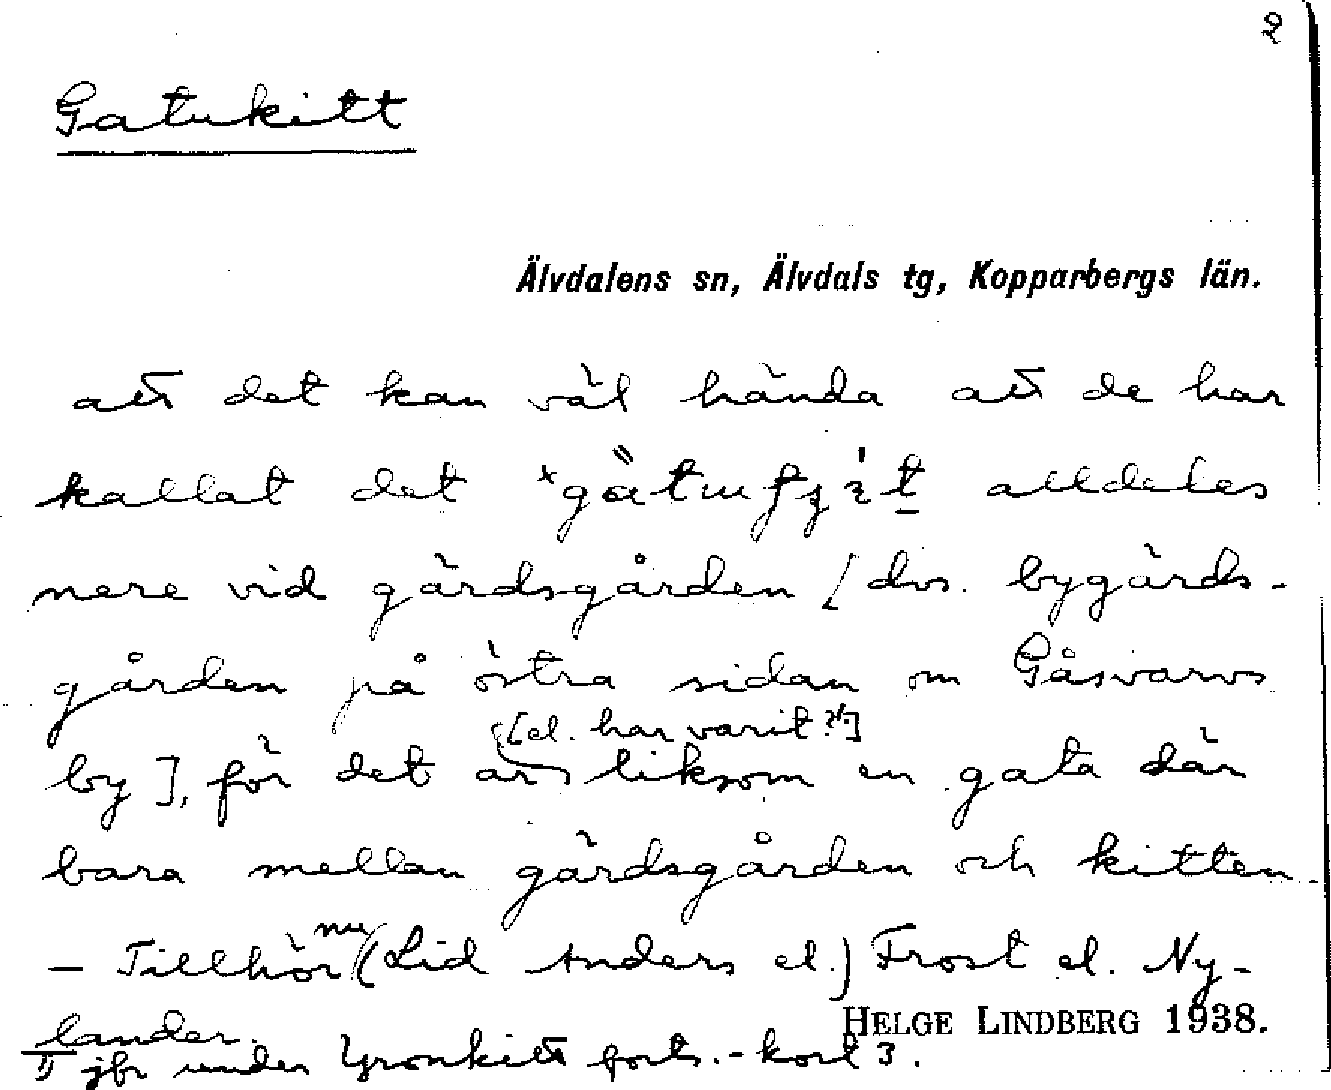 2
Gatukitt
Älvdalens sn, Älvdals tg, Kopparbergs län.
att det kan väl hända att de har
kallat det alldeles
nere vid gärdsgården [dvs. bygärds-
gården på östra sidan om Gåsvarvs
[el. har varit?¹⁾]
by], för det är liksom en gata där
bara mellan gärdsgården och kitten
– Tillhör nu (Lid Anders el.) Frost el. Ny-
lander.
HELGE LINDBERG 1938.
1) jfr under forts.-kort 3.